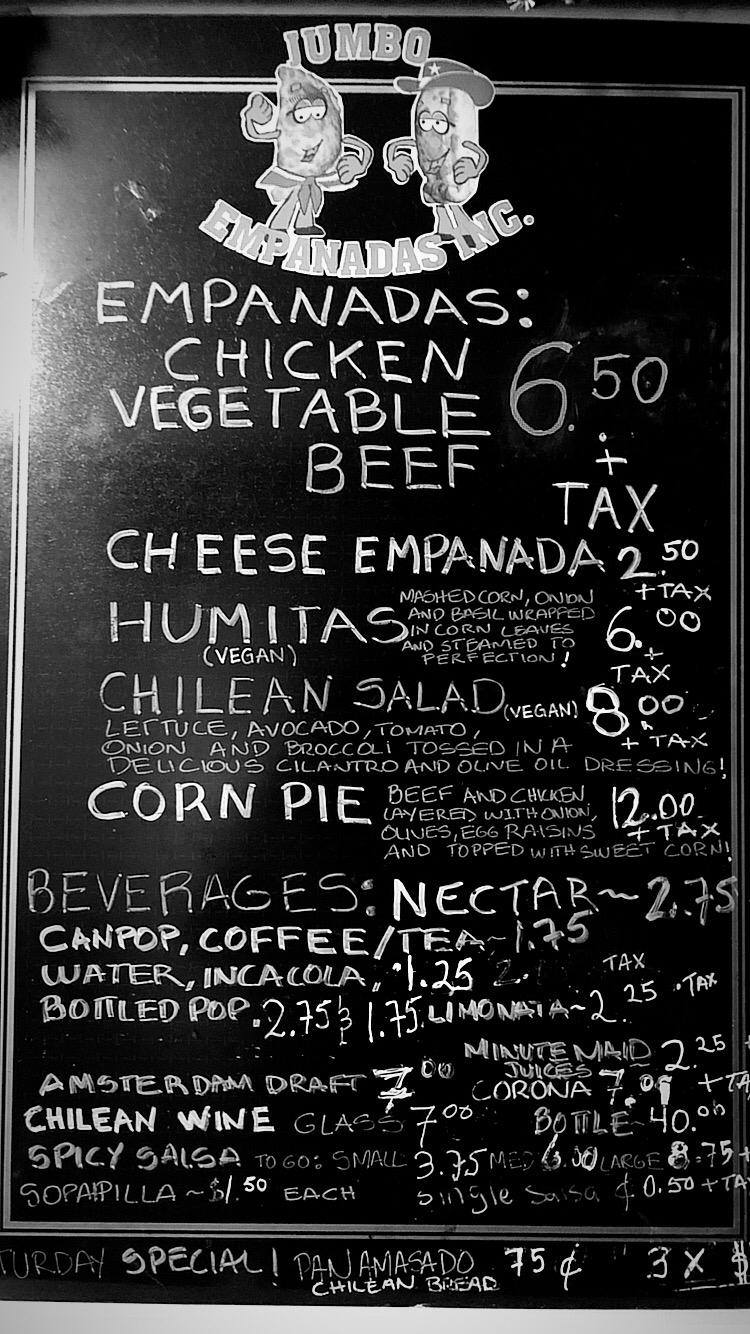 JUMBO
EMPANADAS INC.
EMPANADAS:
CHICKEN
VEGETABLE 6.50
BEEF +
TAX
CHEESE EMPANADA 2.50
+TAX
HUMITAS MASHED CORN, ONION
AND BASIL WRAPPED
IN CORN LEAVES
AND STEAMED TO
PERFECTION! 6.00
(VEGAN) +
TAX
CHILEAN SALAD (VEGAN) 8.00
LETTUCE, AVOCADO, TOMATO,
ONION AND BROCCOLI TOSSED IN A + TAX
DELICIOUS CILANTRO AND OLIVE OIL DRESSING!
CORN PIE BEEF AND CHICKEN 12.00
LAYERED WITH ONION,
OLIVES, EGG RAISINS + TAX
AND TOPPED WITH SWEET CORN!
BEVERAGES: NECTAR~2.75
CANPOP, COFFEE/TEA~1.75
WATER, INCACOLA, 1.25 TAX
BOTTLED POP. 2.75 & 1.75. LIMONATA~2.25 +TAX
MINUTE MAID 2.25 +
JUICES
AMSTERDAM DRAFT 7.00 CORONA 7. +TA
CHILEAN WINE GLASS 7.00 BOTTLE 40.00
SPICY SALSA TO GO: SMALL 3.75 MED 6.00 LARGE 8.75+
SOPAIPILLA ~ $1.50 EACH single salsa ¢ 0.50 +TA
TURDAY SPECIAL! PAN AMASADO 75¢ 3 X $
CHILEAN BREAD